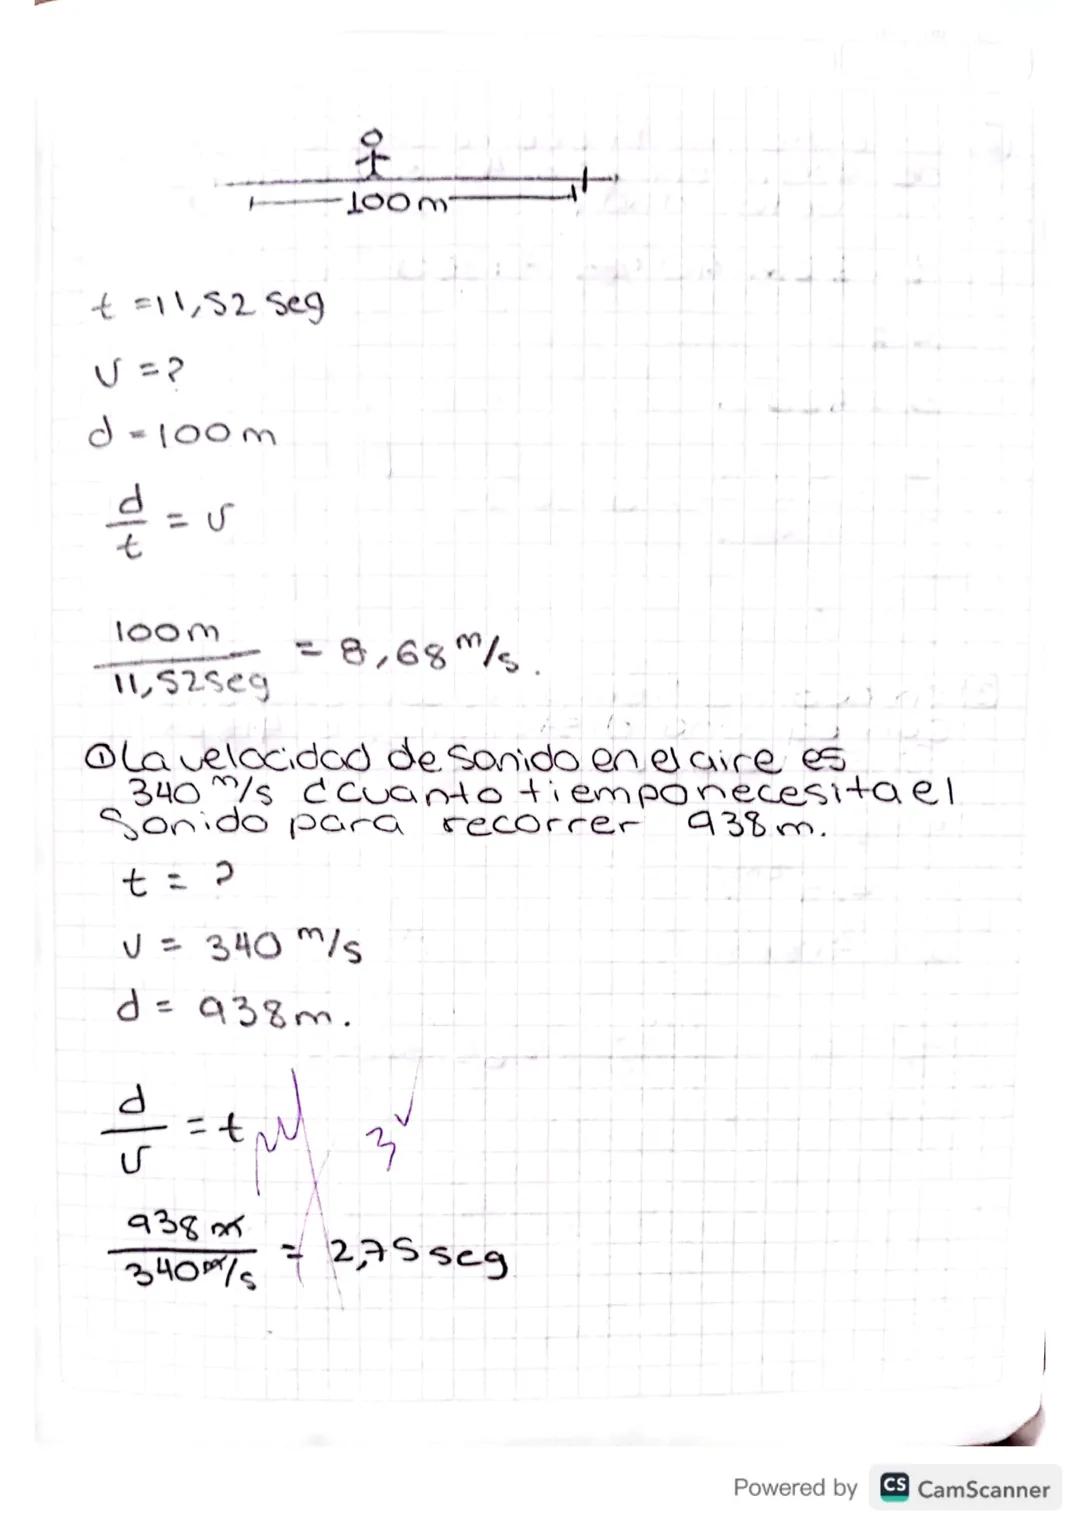 100m
t = 11,52 seg
v = ?
d = 100 m
d
— = v
t
100m
——— = 8,68 m/s.
11,52seg
① La velocidad de sonido en el aire es
340 m/s ¿cuanto tiempo necesita el
Sonido para recorrer 938 m.
t = ?
v = 340 m/s
d = 938m.
d
— = t
v
3
938 m
——— = 2,75 seg
340 m/s
Powered by CS CamScanner